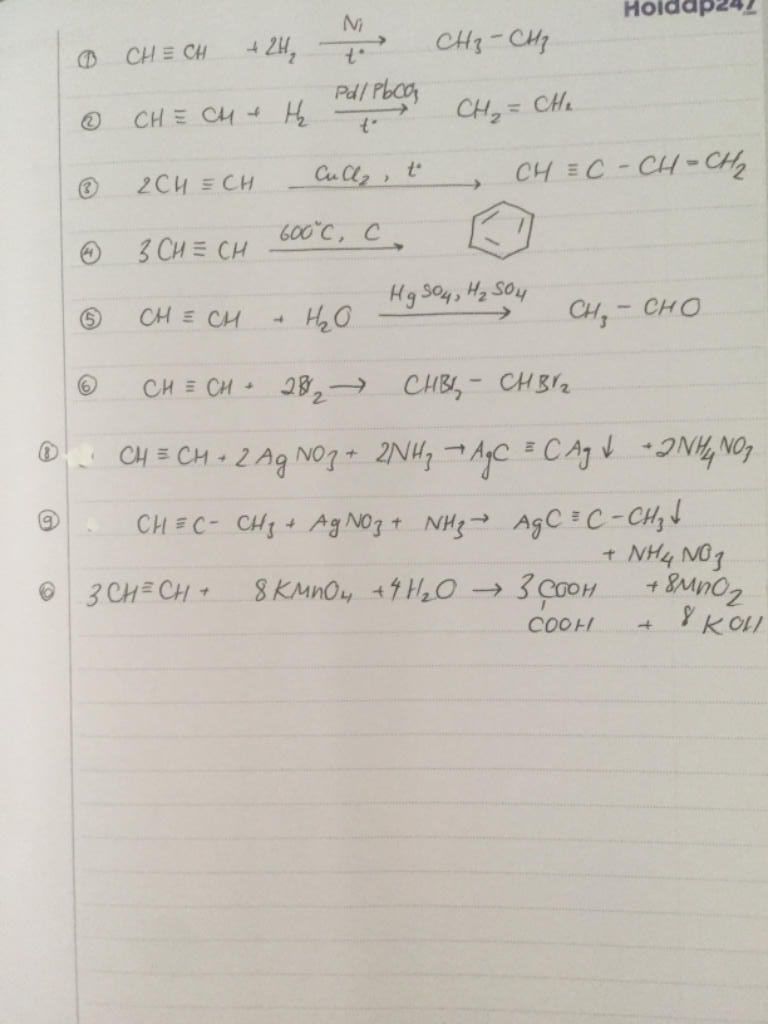 Hoidap247
① CH ≡ CH + 2H₂ —Ni, t°→ CH₃ – CH₃
② CH ≡ CH + H₂ —Pd/PbCO₃, t°→ CH₂ = CH₂
③ 2CH ≡ CH —CuCl₂, t°→ CH ≡ C – CH = CH₂
④ 3CH ≡ CH —600°C, C→
⑤ CH ≡ CH + H₂O —HgSO₄, H₂SO₄→ CH₃ – CHO
⑥ CH ≡ CH + 2Br₂ → CHBr₂ – CHBr₂
⑧ CH ≡ CH + 2AgNO₃ + 2NH₃ → AgC ≡ CAg↓ + 2NH₄NO₃
⑨ CH ≡ C – CH₃ + AgNO₃ + NH₃ → AgC ≡ C – CH₃↓
+ NH₄NO₃
3CH≡CH + 8KMnO₄ + 4H₂O → 3COOH + 8MnO₂
COOH + 8KOH